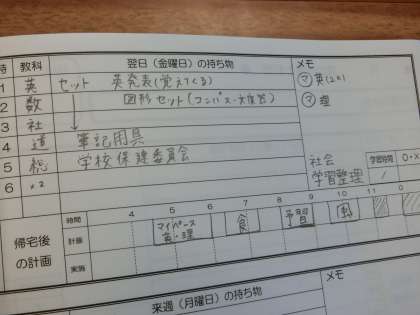 時 教科 翌日（金曜日）の持ち物 メモ
1 英 セット 英発表(覚えてくる) マ英(2A)
2 数 図形セット(コンパス・大定規) マ理
3 社
4 道 筆記用具
5 総 学校保健委員会
6 〃2
社会 学習時間 0・×
学習整理
時間 4 5 6 7 8 9 10 11 0
帰宅後の計画
計画 マイペース 英・理 食 予習
実施
来週（月曜日）の持ち物 メモ